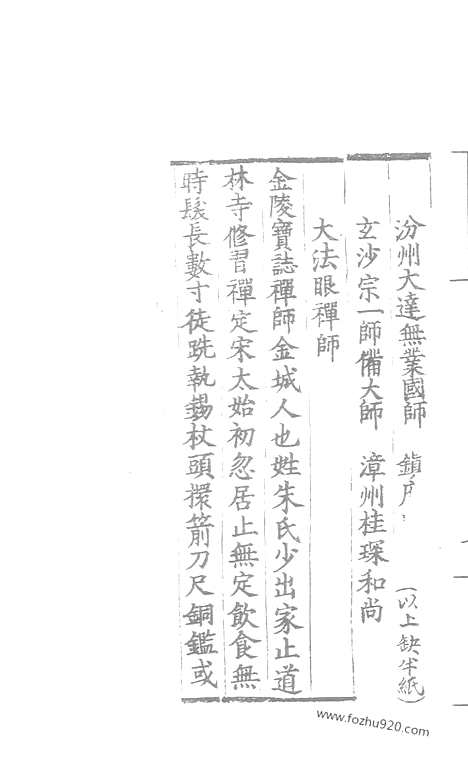 汾州大達無業國師　鎮　（以上缺半紙）
玄沙宗一師備大師　漳州桂琛和尚
大法眼禪師
金陵寶誌禪師金城人也姓朱氏少出家止道
林寺修習禪定宋太始初忽居止無定飲食無
時髮長數寸徒跣執錫杖頭擐剪刀尺銅鑑或
www.fozhu920.com